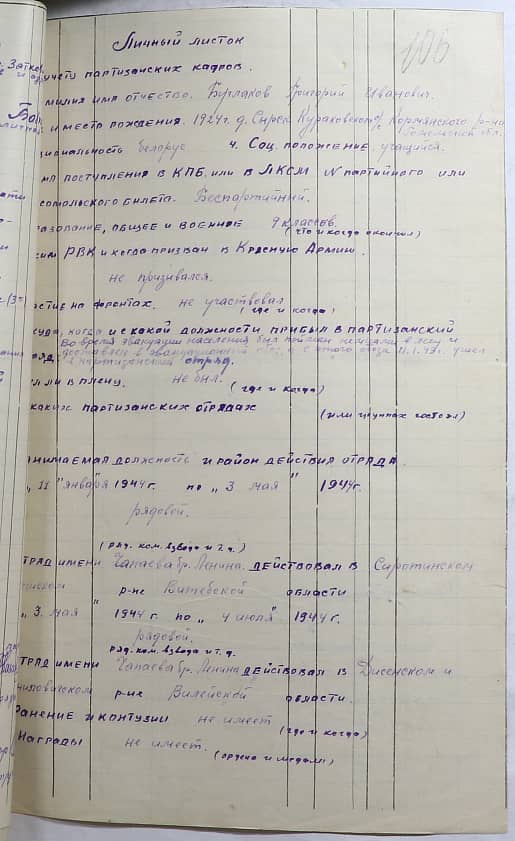 106
Личный листок
учету партизанских кадров.
милия имя отчество. Бурлаков Григорий Иванович.
и место рождения. 1924г. д. Сырск Кураковского с/с Кормянского р-на
Гомельской обл.
циальность белорус 4. Соц. положение учащийся.
мя поступления в КПБ, или в ЛКСМ № партийного или
сомольского билета. Беспартийный.
разование, общее и военное 9 классов.
(что и когда окончил)
ким РВК и когда призван в Красную Армию.
не призывался.
стие на фронтах. не участвовал
(где и когда)
куда, когда и с какой должности прибыл в партизанский
Во время эвакуации населения был пойман немцами в лесу и
доставлен в эвакуационный с этого 11.1.43г. ушел
в партизанский отряд.
ли в плену. не был.
(где и когда)
каких партизанских отрядах
(или группах состоял)
нимаемая должность и район действия отряда.
„11" января" 1944г. по „3 мая" 1944г.
рядовой.
(ряд. ком. взвода и т.д.)
тряд имени Чапаева бр. Ленина. действовал в Сиротинском
р-не Витебской области
„3 мая" 1944г. по „4 июля" 1944г.
рядовой.
ряд. ком. взвода и т.д.
тряд имени Чапаева бр. Ленина действовал в Дисенском и
р-нах Вилейской области.
Ранение и контузии не имеет
(где и когда)
Награды не имеет.
(ордена и медали)